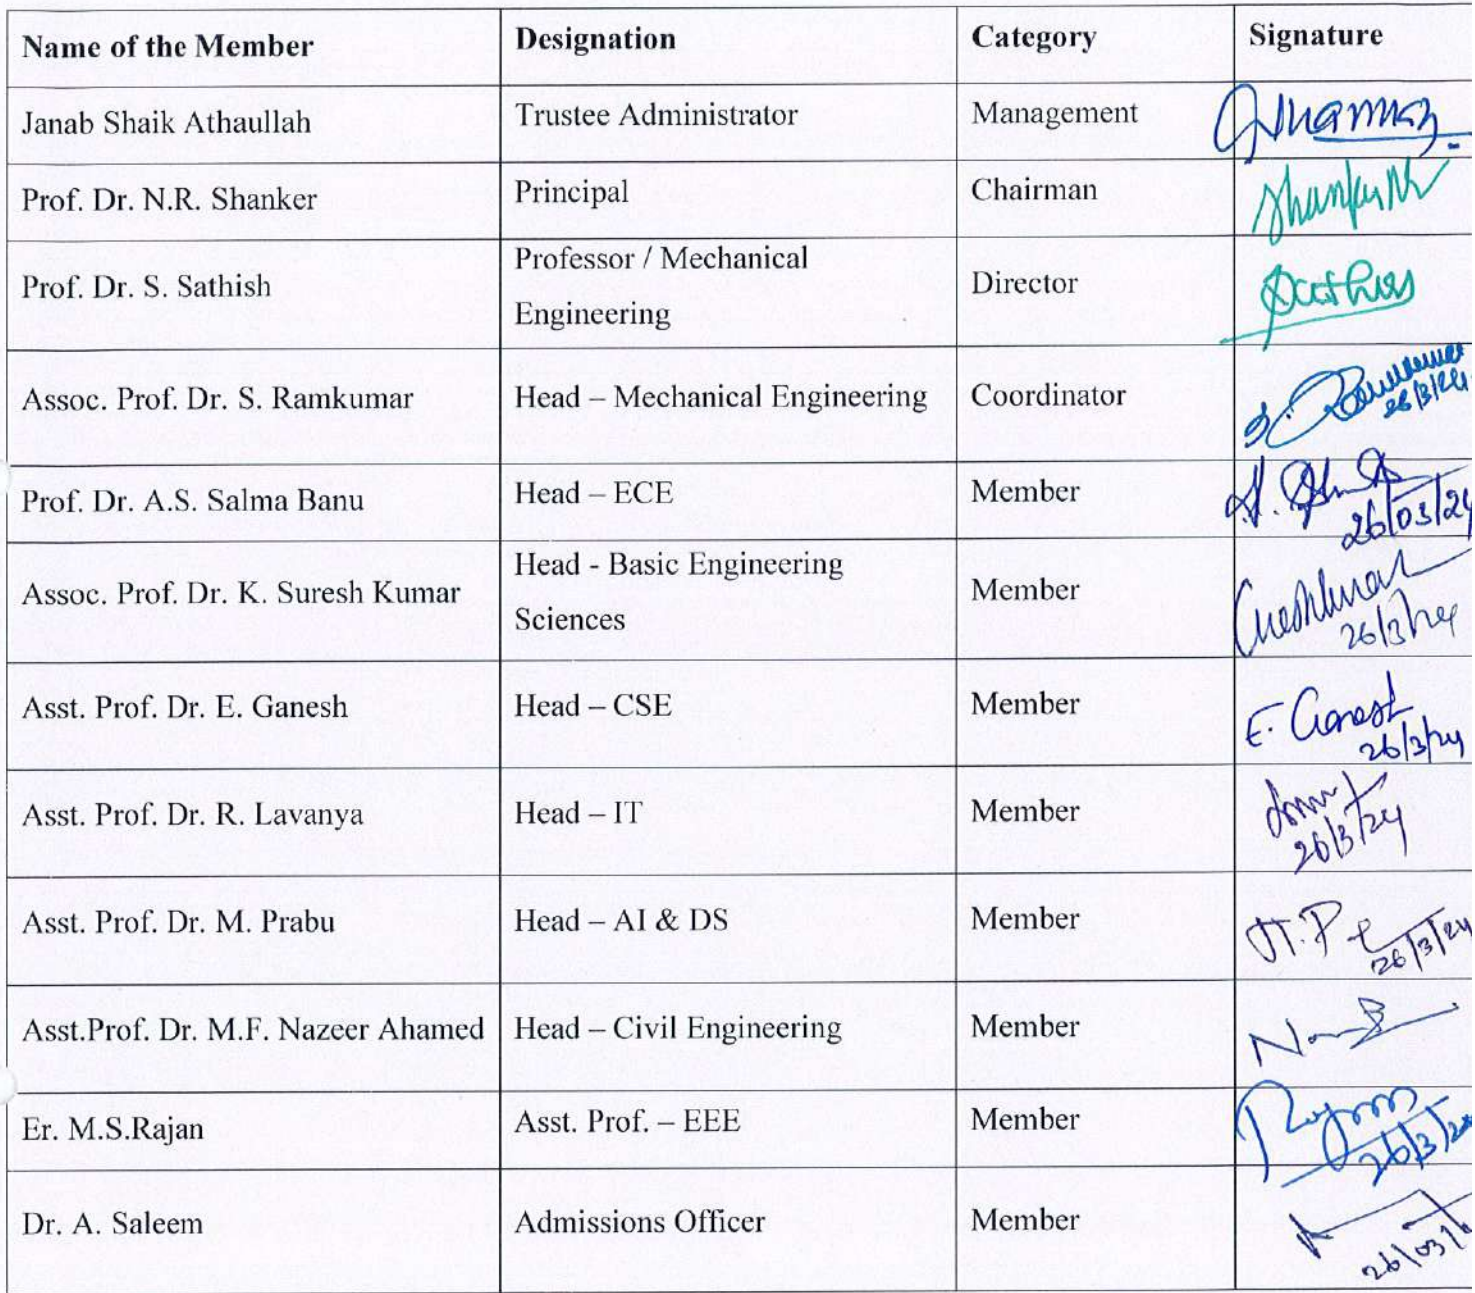 Name of the Member Designation Category Signature
Janab Shaik Athaullah Trustee Administrator Management
Prof. Dr. N.R. Shanker Principal Chairman
Prof. Dr. S. Sathish Professor / Mechanical Director
Engineering
Assoc. Prof. Dr. S. Ramkumar Head – Mechanical Engineering Coordinator
26/3/24
Prof. Dr. A.S. Salma Banu Head – ECE Member
26/03/24
Assoc. Prof. Dr. K. Suresh Kumar Head - Basic Engineering Member
Sciences
26/3/24
Asst. Prof. Dr. E. Ganesh Head – CSE Member E. Ganesh
26/3/24
Asst. Prof. Dr. R. Lavanya Head – IT Member
26/3/24
Asst. Prof. Dr. M. Prabu Head – AI & DS Member
26/3/24
Asst.Prof. Dr. M.F. Nazeer Ahamed Head – Civil Engineering Member
Er. M.S.Rajan Asst. Prof. – EEE Member
Dr. A. Saleem Admissions Officer Member